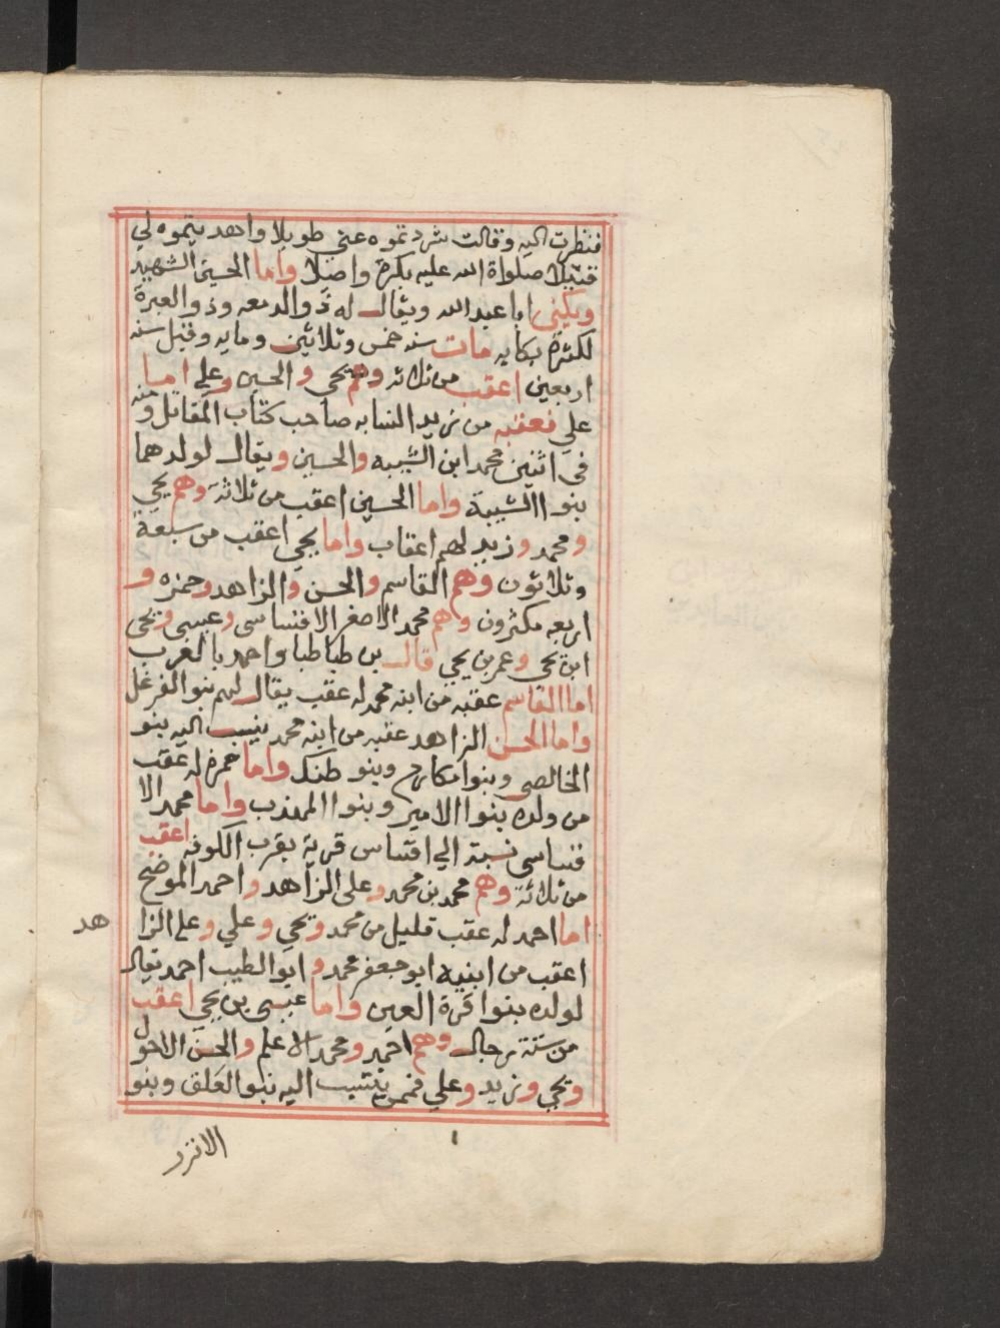 فنظرت اليه وقالت شردتموه عني طويلا واهديتموه لي
قتيلا صلواة الله عليه بكرة واصيلا واما الحسين الشهيد
ويكنى ابا عبد الله ويقال له ذو الدمعه وذو العبرة
لكثرة بكايه مات سنه خمس وثلاثين ومايه وقيل سنه
اربعين اعقب من ثلاثه وهم يحي و الحسين وعلي اما
علي فعقبه من زيد النسابه صاحب كتاب المقاتل ومنه
في اثنين محمد ابن الشبيه والحسين ويقال لولدهما
بنو الشبيبة واما الحسين اعقب من ثلاثة وهم يحي
ومحمد وزيد لهم اعقاب واما يحي اعقب من سبعة
وثلاثون وهم القاسم والحسن والزاهد وحمزه و
اربعه مكثرون وهم محمد الاصغر الاقساسى وعيسى ويحى
ابن يحي وعمر بن يحي قال بن طباطبا واحمد بالغرب
اما القاسم عقبه من ابنه محمد له عقب يقال لهم بنو الفرغل
واما الحسن الزاهد عقبه من ابنه محمد ينسب اليه بنو
الخالصي وبنوا مكارم وبنو طنك واما حمزه له عقب
من ولده بنوا الامير وبنوا المهذب واما محمد الا
قساسي نسبة الي اقساس قرية بقرب الكوفه اعقب
من ثلاثة وهم محمد بن محمد وعلى الزاهد واحمد الموضح
اما احمد له عقب قليل من محمد ويحي وعلي وعلي الزا هد
اعقب من ابنيه ابو جعفر محمد و ابو الطيب احمد يقال
لولده بنوا قرة العين واما عيسى بن يحي اعقب
من ستة رجال وهم احمد ومحمد الاعلم والحسن الاحول
ويحي وزيد وعلي فممن ينتسب اليه بنو العلق وبنو